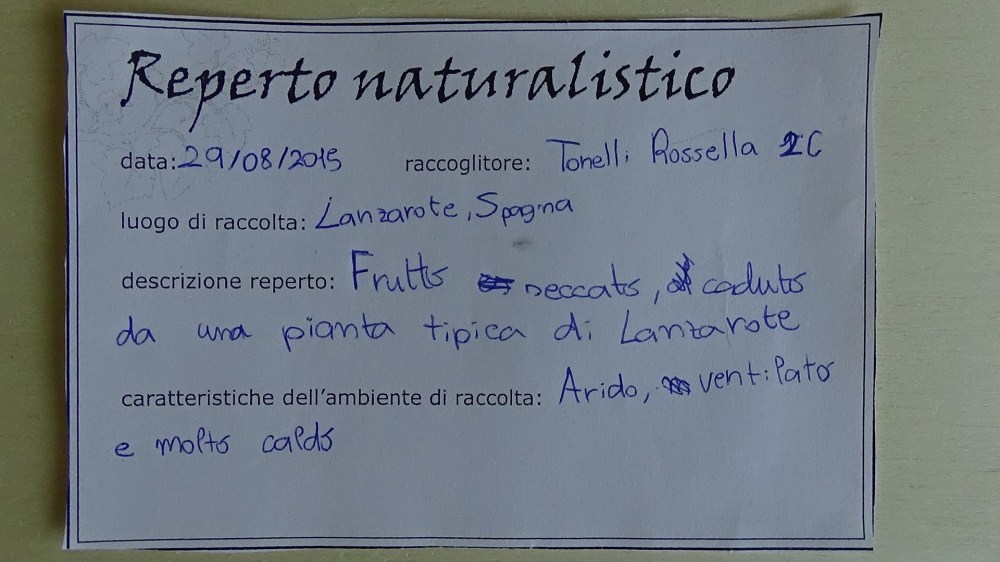 Reperto naturalistico
data: 29/08/2015 raccoglitore: Tonelli Rossella 2C
luogo di raccolta: Lanzarote, Spagna
descrizione reperto: Frutto seccato, caduto
da una pianta tipica di Lanzarote
caratteristiche dell'ambiente di raccolta: Arido, ventilato
e molto caldo